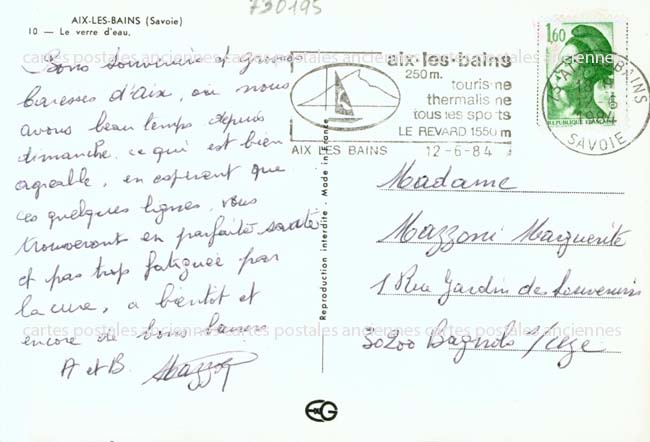 730195
AIX-LES-BAINS (Savoie)
10 — Le verre d'eau.
Bons souvenirs et grosses
caresses d'Aix, ou nous
avons beau temps depuis
dimanche, ce qui est bien
agréable, en esperant que
ces quelques lignes, vous
trouveront en parfaite santé
et pas trop fatiguée par
la cure, a bientôt et
encore de bons baisers
A et B. Mazzoni
aix·les·bains
250 m.
tourisme
thermalisme
tous les sports
LE REVARD 1550 m
AIX LES BAINS 12-6-84
1,60
REPUBLIQUE FRANÇAISE
73 AIX LES BAINS
12-6
1984
SAVOIE
Reproduction interdite - Made in France
Madame
Mazzoni Marguerite
1 Rue Jardin des Souvenirs
30200 Bagnols/Ceze
cartes postales anciennes cartes postales anciennes cartes postales anciennes
cartes postales anciennes cartes postales anciennes cartes postales anciennes
EG